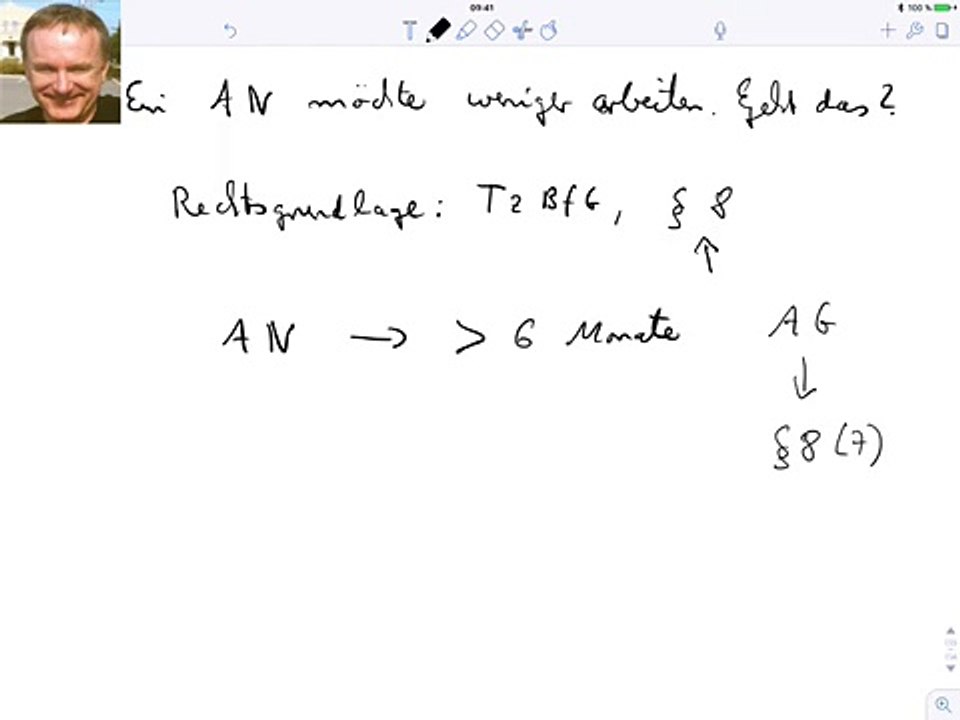 09:41
100 %
Ein AN möchte weniger arbeiten. Geht das?
Rechtsgrundlage: TzBfG, § 8
↑
AN → > 6 Monate AG
↓
§ 8 (7)